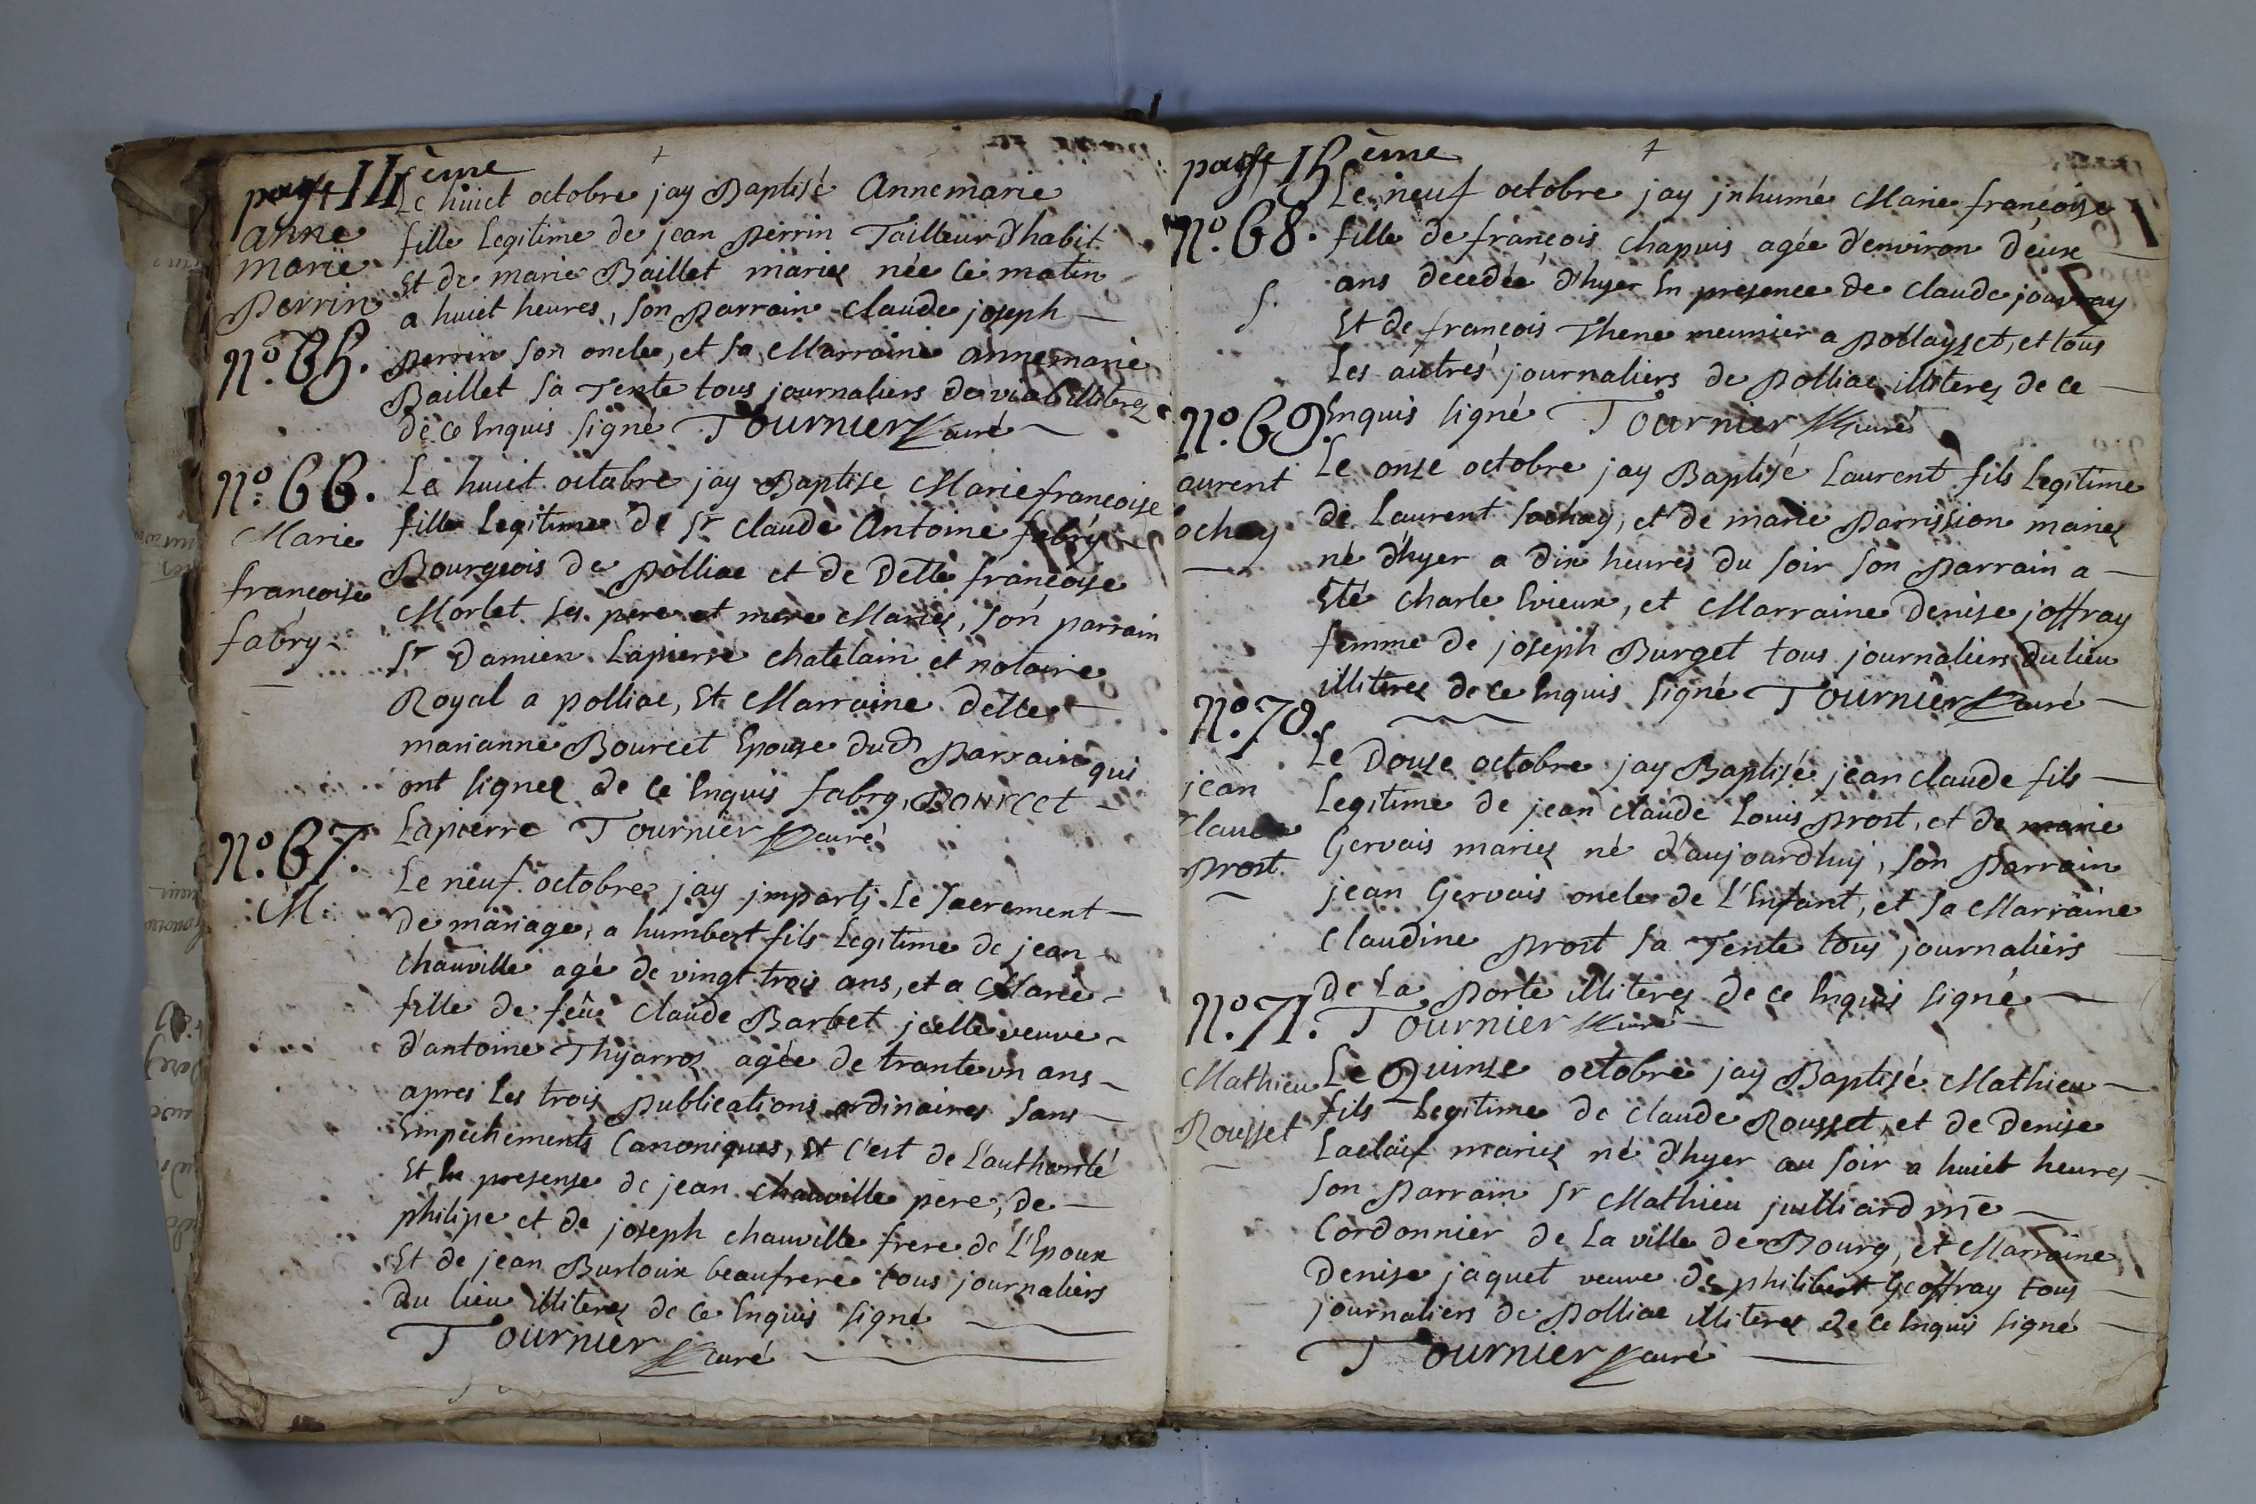 page 14ème
Le huict octobre jay Baptisé Annemarie
fille Legitime de jean perrin Tailleur D'habit
Et de marie Baillet mariez née ce matin
a huict heures, son parrain claude joseph
perrin son oncle, et sa Marraine annemarie
Baillet sa Tente tous journaliers de illiterez
de ce Enquis signé Tournier curé
anne
marie
perrin
N°. 65.
N°. 66.
Marie
francoise
fabry
Le huict octobre jay Baptise Marie francoise
fille Legitime de Sr claude Antoine fabry
Bourgeois de polliac et de Delle francoise
Morlet ses pere et mere Mariez, son parrain
Sr Damien Lapierre chatelain et notaire
Royal a polliac, Et Marraine Delle
marianne Bourcet Epouse dud parrain qui
ont signez de ce Enquis fabry, Bourcet
Lapierre Tournier curé
N°. 67.
M.
Le neuf octobre jay imparti Le Sacrement
De mariage, a humbert fils Legitime de jean
chauville agé de vingt trois ans, et a Marie
fille de feû Claude Barbet jcelle veuve
d'antoine Thyarros agée de trante un ans
apres Les trois publications ordinaires sans
Empêchements Canoniques, Et c'est de L'authorité
Et En presense de jean chauville pere, de
philipe et de joseph chauville frere de L'Epoux
Et de jean Burloux beaufrere tous journaliers
Du lieu illiterez de ce Enquis signé
Tournier curé
page 15ème
N°. 68.
S.
Le neuf octobre jay jnhumé Marie françoise
fille de françois chapuis agée d'environ deux
ans decedée d'hyer En presence de claude jouvray
Et de françois Thene meunier a pollayzet, et tous
Les autres journaliers de polliac illiterez de ce
Enquis signé Tournier curé
N°. 69.
aurent
ochay
Le onze octobre jay Baptisé Laurent fils Legitime
de Laurent sochay, et de marie parrission mariez
né d'hyer a dix heures du soir son parrain a
Eté charle Evieux, et Marraine Denise joffray
femme de joseph Burget tous journaliers du lieu
illiterez de ce Enquis signé Tournier curé
N°. 70.
jean
claude
prost
Le Douze octobre jay Baptisé jean claude fils
Legitime de jean claude Louis prost, et de marie
Gervais mariez né d'aujourdhuj, son parrain
jean Gervais oncle de L'Enfant, et sa Marraine
Claudine prost sa Tente tous journaliers
de La porte illiterez de ce Enquis signé
Tournier curé
N°. 71.
Mathieu
Rousset
Le Quinze octobre jay Baptisé Mathieu
fils Legitime de claude Rousset, et de Denise
Laclaix mariez né d'hyer au soir a huict heures
son parrain Sr Mathieu juilliard me
Cordonnier de La ville de Bourg, et Marraine
Denise jaquet veuve de philibert Geoffray tous
journaliers de polliac illiterez de ce Enquis signé
Tournier curé